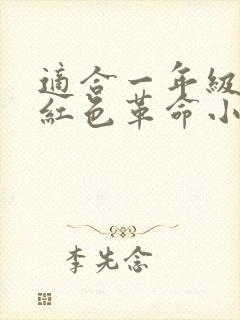 適合一年級
紅色革命小
李先念